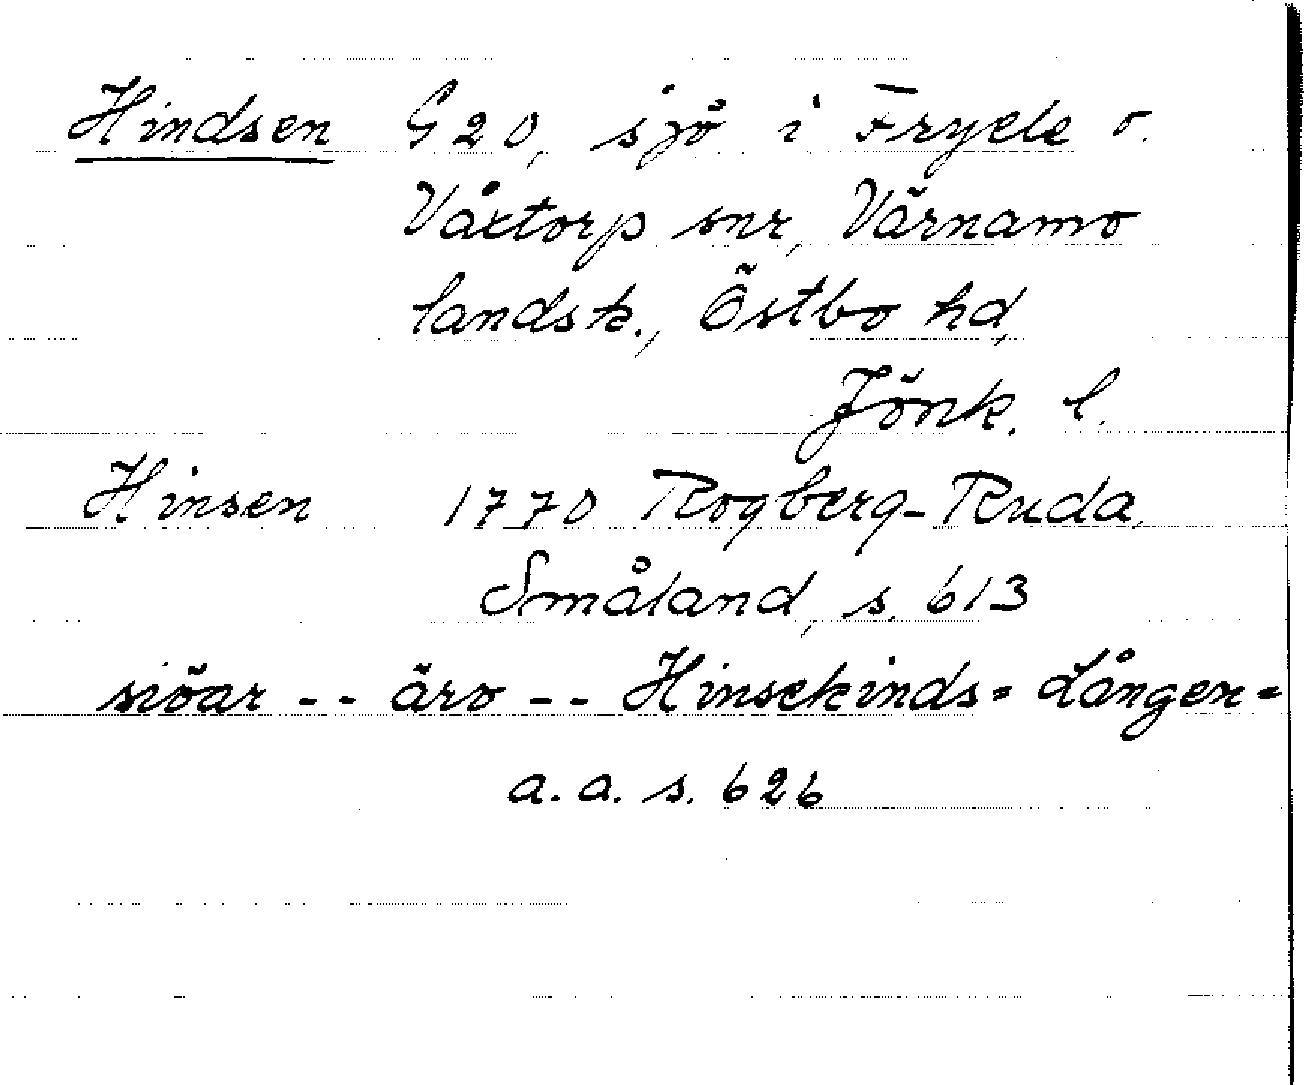 Hindsen G20, sjö i Fryele o.
Våxtorp snr, Värnamo
landsk., Östbo hd,
Jönk. l.
Hinsen 1770 Rogberg-Ruda,
Småland, s. 613
siöar -- äro -- Hinsekinds= Lången=
a.a. s. 626